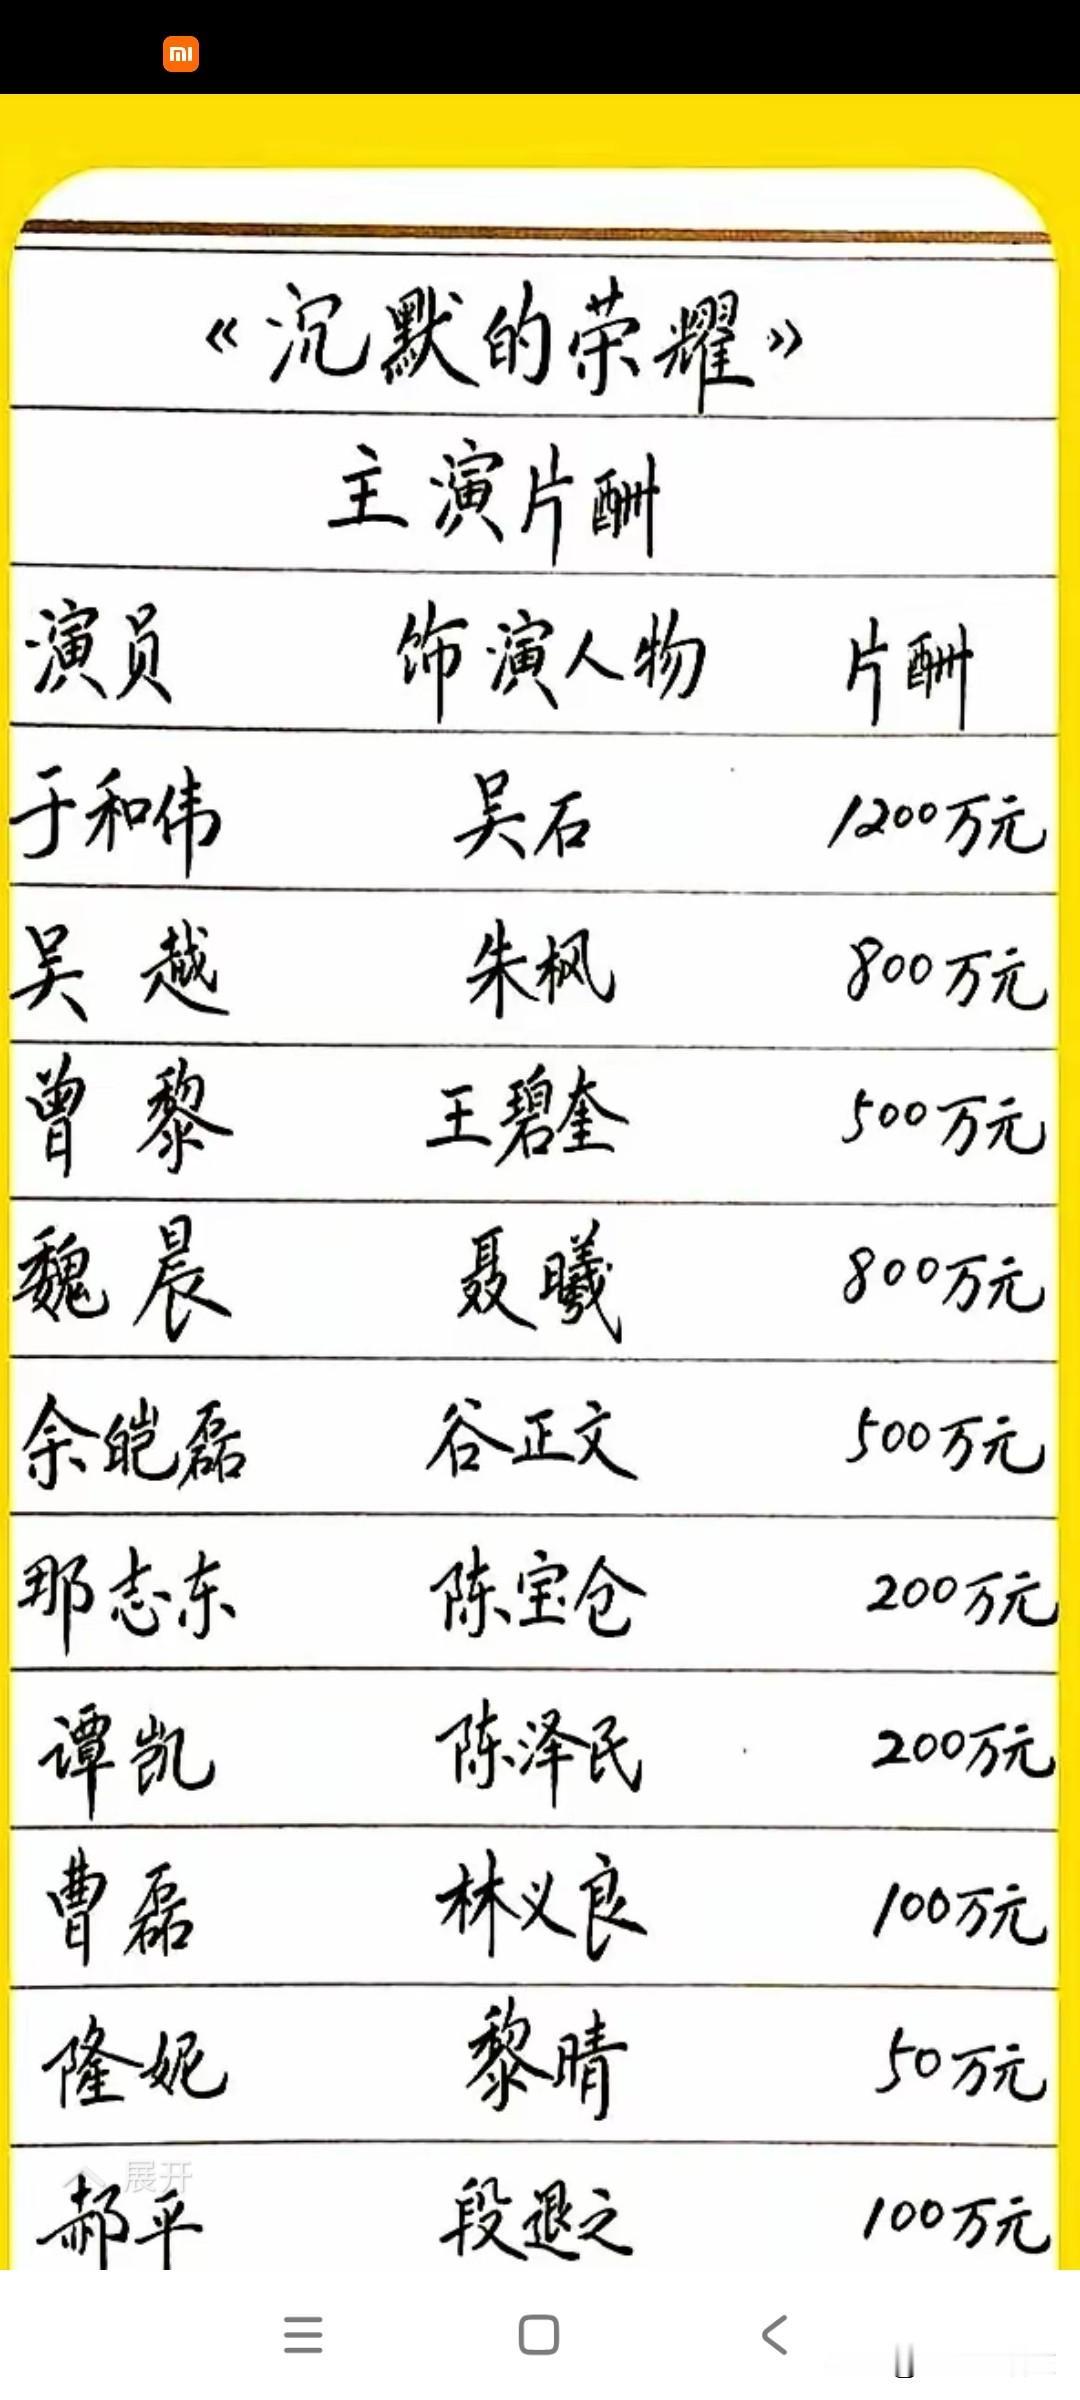 《沉默的荣耀》
主演片酬
演员 饰演人物 片酬
于和伟 吴石 1200万元
吴越 朱枫 800万元
曾黎 王碧奎 500万元
魏晨 聂曦 800万元
余皑磊 谷正文 500万元
那志东 陈宝仓 200万元
谭凯 陈泽民 200万元
曹磊 林义良 100万元
隆妮 黎晴 50万元
展开
郝平 段退之 100万元